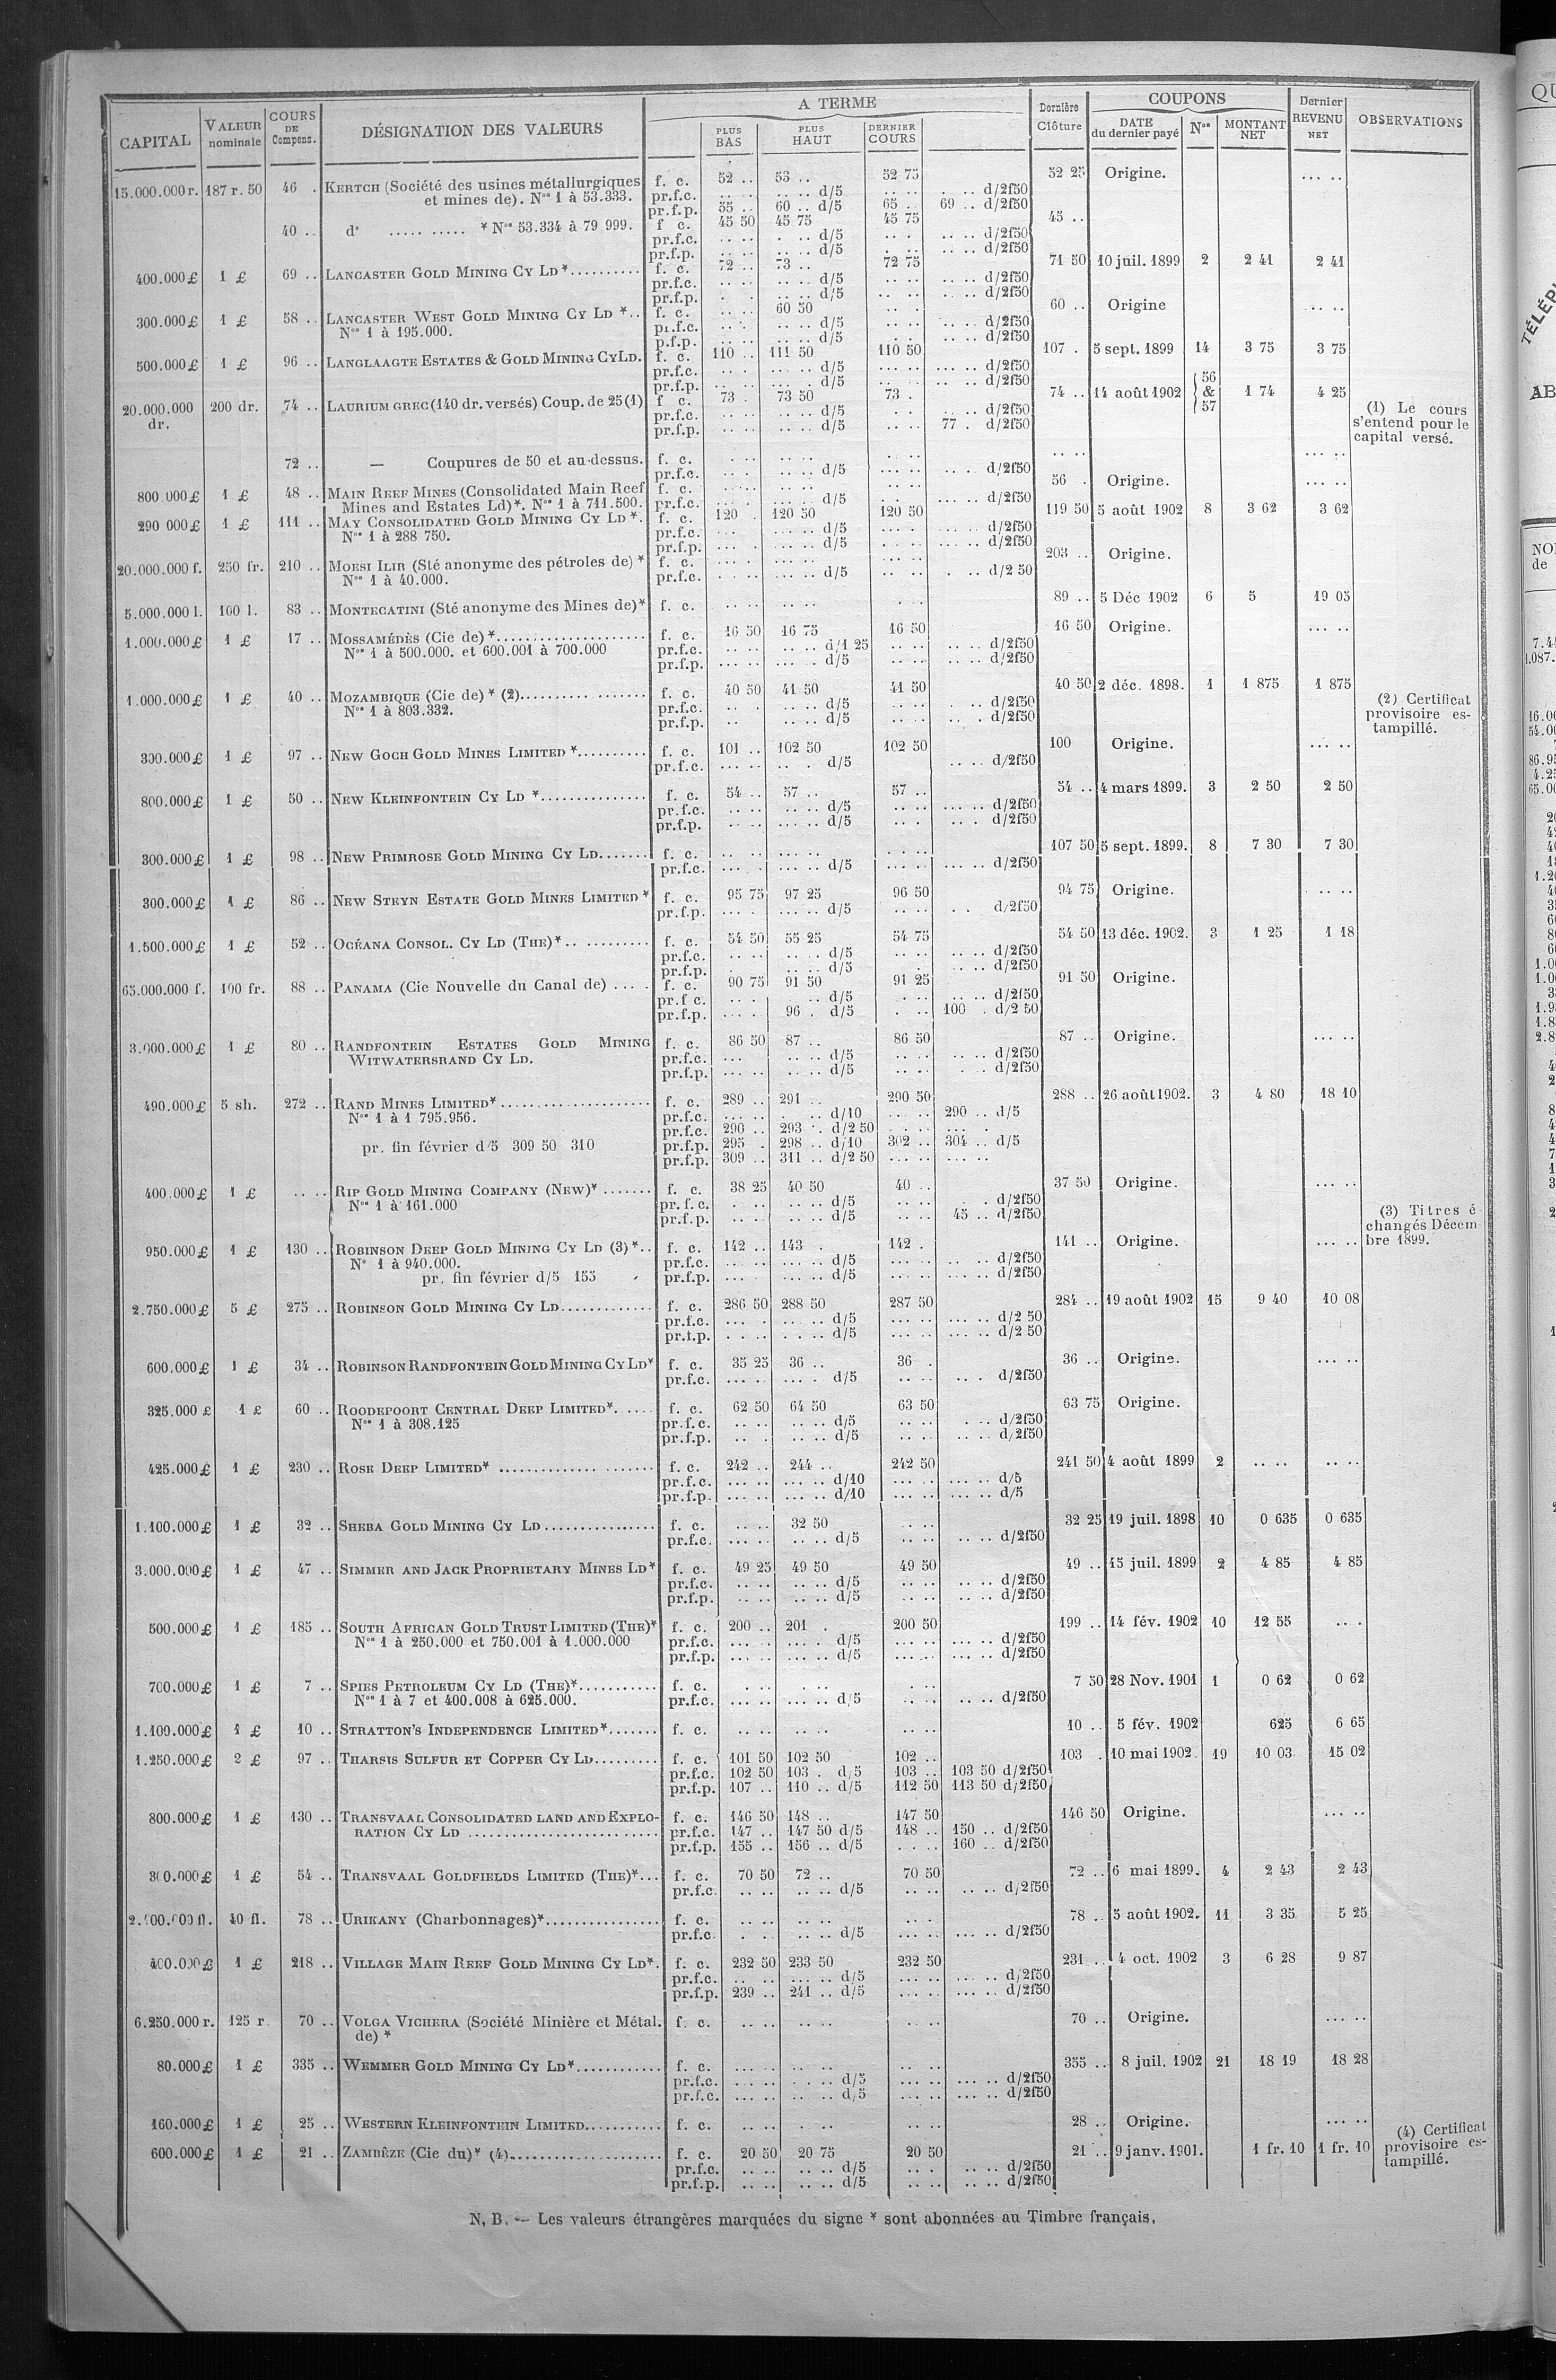 CAPITAL | VALEUR nominale | COURS DE Compens. | DÉSIGNATION DES VALEURS | A TERME | PLUS BAS | PLUS HAUT | DERNIER COURS | Dernière Clôture | COUPONS | DATE du dernier payé | Nos | MONTANT NET | Dernier REVENU NET | OBSERVATIONS
15.000.000 r. 187 r. 50 46 . KERTCH (Société des usines métallurgiques f. c. 52 .. 53 .. 52 75 52 25 Origine. ... ..
et mines de). Nos 1 à 53.333. pr.f.c. .. .. .. .. d/5 .. .. . .. d/2f50
pr.f.p. 55 .. 60 .. d/5 65 .. 69 .. d/2f50
40 .. do ..... ..... * Nos 53.334 à 79 999. f c. 45 50 45 75 45 75 45 ..
pr.f.c. d/5 d/2f50
pr.f.p. d/5 d/2f50
400.000 £ 1 £ 69 .. LANCASTER GOLD MINING CY LD *.......... f. c. 72 .. 73 .. 72 75 71 50 10 juil. 1899 2 2 41 2 41
pr.f.c. d/5 d/2f50
pr.f.p. d/5 d/2f50
300.000 £ 1 £ 58 .. LANCASTER WEST GOLD MINING CY LD *.. f. c. 60 50 60 .. Origine ... ..
Nos 1 à 195.000. pr.f.c. d/5 d/2f50
p.f.p. d/5 d/2f50
500.000 £ 1 £ 96 .. LANGLAAGTE ESTATES & GOLD MINING CY LD. f. c. 110 .. 111 50 110 50 107 . 5 sept. 1899 14 3 75 3 75
pr.f.c. d/5 d/2f50
pr.f.p. d/5 d/2f50
20.000.000 dr. 200 dr. 74 .. LAURIUM GREC (140 dr. versés) Coup. de 25 (1) f c. 73 . 73 50 73 . 74 .. 14 août 1902 56 & 57 1 74 4 25
pr.f.c. d/5 d/2f50
pr.f.p. d/5 77 . d/2f50
(1) Le cours
s'entend pour le
capital versé.
72 .. — Coupures de 50 et au-dessus. f. c. .. .. ... ..
pr.f.c. d/5 d/2f50
800.000 £ 1 £ 48 .. MAIN REEF MINES (Consolidated Main Reef f. c. 56 . Origine. ... ..
Mines and Estates Ld)*. Nos 1 à 711.500. pr.f.c. d/5 d/2f50
290 000 £ 1 £ 111 .. MAY CONSOLIDATED GOLD MINING CY LD *. f. c. 120 . 120 50 120 50 119 50 5 août 1902 8 3 62 3 62
Nos 1 à 288 750. pr.f.c. d/5 d/2f50
pr.f.p. d/5 d/2f50
20.000.000 f. 250 fr. 210 .. MORSI ILIR (Sté anonyme des pétroles de) * f. c. 203 .. Origine.
Nos 1 à 40.000. pr.f.c. d/5 d/2 50
5.000.000 l. 100 l. 83 .. MONTECATINI (Sté anonyme des Mines de)* f. c. 89 .. 5 Déc 1902 6 5 19 05
1.000.000 £ 1 £ 17 .. MOSSAMÉDÈS (Cie de) *...................... f. c. 16 50 16 75 16 50 16 50 Origine. ... ..
Nos 1 à 500.000. et 600.001 à 700.000 pr.f.c. d/1 25 d/2f50
pr.f.p. d/5 d/2f50
1.000.000 £ 1 £ 40 .. MOZAMBIQUE (Cie de) * (2).................. f. c. 40 50 41 50 41 50 40 50 2 déc. 1898. 1 1 875 1 875
Nos 1 à 803.332. pr.f.c. d/5 d/2f50
pr.f.p. d/5 d/2f50
(2) Certificat
provisoire es-
tampillé.
300.000 £ 1 £ 97 .. NEW GOCH GOLD MINES LIMITED *.......... f. c. 101 .. 102 50 102 50 100 Origine. ... ..
pr.f.c. d/5 d/2f50
800.000 £ 1 £ 50 .. NEW KLEINFONTEIN CY LD *............... f. c. 54 .. 57 .. 57 .. 54 .. 4 mars 1899. 3 2 50 2 50
pr.f.c. d/5 d/2f50
pr.f.p. d/5 d/2f50
300.000 £ 1 £ 98 .. NEW PRIMROSE GOLD MINING CY LD....... f. c. 107 50 5 sept. 1899. 8 7 30 7 30
pr.f.c. d/5 d/2f50
300.000 £ 1 £ 86 .. NEW STEYN ESTATE GOLD MINES LIMITED * f. c. 95 75 97 25 96 50 94 75 Origine. .. ..
pr.f.p. d/5 d/2f50
1.500.000 £ 1 £ 52 .. OCÉANA CONSOL. CY LD (THE)*.. .......... f. c. 54 50 55 25 54 75 54 50 13 déc. 1902. 3 1 25 1 18
pr.f.c. d/5 d/2f50
pr.f.p. d/5 d/2f50
65.000.000 f. 100 fr. 88 .. PANAMA (Cie Nouvelle du Canal de) .... f. c. 90 75 91 50 91 25 91 50 Origine.
pr.f c. d/5 d/2f50
pr.f.p. 96 . d/5 100 . d/2 50
3.000.000 £ 1 £ 80 .. RANDFONTEIN ESTATES GOLD MINING f. c. 86 50 87 .. 86 50 87 .. Origine. ... ..
WITWATERSRAND CY LD. pr.f.c. d/5 d/2f50
pr.f.p. d/5 d/2f50
490.000 £ 5 sh. 272 .. RAND MINES LIMITED*...................... f. c. 289 .. 291 .. 290 50 288 .. 26 août 1902. 3 4 80 18 10
Nos 1 à 1 795.956. pr.f.c. d/10 290 .. d/5
pr.f.c. 290 .. 293 .. d/2 50
pr. fin février d/5 309 50 310 pr.f.p. 295 . 298 .. d/10 302 .. 304 .. d/5
pr.f.p. 309 .. 311 .. d/2 50
400.000 £ 1 £ .. .. RIP GOLD MINING COMPANY (NEW)* ....... f. c. 38 25 40 50 40 .. 37 50 Origine. ... ..
Nos 1 à 161.000 pr.f.c. d/5 d/2f50
pr.f.p. d/5 45 .. d/2f50
(3) Titres é-
changés Décem-
bre 1899.
950.000 £ 1 £ 130 .. ROBINSON DEEP GOLD MINING CY LD (3)*.. f. c. 142 .. 143 . 142 . 141 .. Origine. ... ..
No 1 à 940.000. pr.f.c. d/5 d/2f50
pr. fin février d/5 155 pr.f.p. d/5 d/2f50
2.750.000 £ 5 £ 275 .. ROBINSON GOLD MINING CY LD............. f. c. 286 50 288 50 287 50 284 .. 19 août 1902 15 9 40 10 08
pr.f.c. d/5 d/2 50
pr.f.p. d/5 d/2 50
600.000 £ 1 £ 34 .. ROBINSON RANDFONTEIN GOLD MINING CY LD* f. c. 35 25 36 .. 36 . 36 .. Origine. ... ..
pr.f.c. d/5 d/2f50
325.000 £ 1 £ 60 .. ROODEPOORT CENTRAL DEEP LIMITED*. .... f. c. 62 50 64 50 63 50 63 75 Origine.
Nos 1 à 308.125 pr.f.c. d/5 d/2f50
pr.f.p. d/5 d/2f50
425.000 £ 1 £ 230 .. ROSE DEEP LIMITED* ...................... f. c. 242 .. 244 .. 242 50 241 50 4 août 1899 2 .. .. .. ..
pr.f.c. d/10 d/5
pr.f.p. d/10 d/5
1.100.000 £ 1 £ 32 .. SHEBA GOLD MINING CY LD................ f. c. 32 50 32 25 19 juil. 1898 10 0 635 0 635
pr.f.c. d/5 d/2f50
3.000.000 £ 1 £ 47 .. SIMMER AND JACK PROPRIETARY MINES LD* f. c. 49 25 49 50 49 50 49 .. 15 juil. 1899 2 4 85 4 85
pr.f.c. d/5 d/2f50
pr.f.p. d/5 d/2f50
500.000 £ 1 £ 185 .. SOUTH AFRICAN GOLD TRUST LIMITED (THE)* f. c. 200 .. 201 . 200 50 199 .. 14 fév. 1902 10 12 55 .. .
Nos 1 à 250.000 et 750.001 à 1.000.000 pr.f.c. d/5 d/2f50
pr.f.p. d/5 d/2f50
700.000 £ 1 £ 7 .. SPIES PETROLEUM CY LD (THE)*........... f. c. 7 50 28 Nov. 1901 1 0 62 0 62
Nos 1 à 7 et 400.008 à 625.000. pr.f.c. d/5 d/2f50
1.100.000 £ 1 £ 10 .. STRATTON'S INDEPENDENCE LIMITED*....... f. c. 10 .. 5 fév. 1902 625 6 65
1.250.000 £ 2 £ 97 .. THARSIS SULFUR ET COPPER CY LD......... f. c. 101 50 102 50 102 .. 103 . 10 mai 1902. 19 10 03 15 02
pr.f.c. 102 50 103 . d/5 103 .. 103 50 d/2f50
pr.f.p. 107 .. 110 .. d/5 112 50 113 50 d/2f50
800.000 £ 1 £ 130 .. TRANSVAAL CONSOLIDATED LAND AND EXPLO- f. c. 146 50 148 .. 147 50 146 50 Origine. ... ..
RATION CY LD ......................... pr.f.c. 147 .. 147 50 d/5 148 .. 150 .. d/2f50
pr.f.p. 155 .. 156 .. d/5 160 .. d/2f50
300.000 £ 1 £ 54 .. TRANSVAAL GOLDFIELDS LIMITED (THE)*... f. c. 70 50 72 .. 70 50 72 .. 6 mai 1899. 4 2 43 2 43
pr.f.c. d/5 d/2f50
fl. 40 fl. 78 .. URIKANY (Charbonnages)*................ f. c. 78 .. 5 août 1902. 11 3 35 5 25
pr.f.c. d/5 d/2f50
400.000 £ 1 £ 218 .. VILLAGE MAIN REEF GOLD MINING CY LD*. f. c. 232 50 233 50 232 50 231 .. 4 oct. 1902 3 6 28 9 87
pr.f.c. d/5 d/2f50
pr.f.p. 239 .. 241 .. d/5 d/2f50
6.250.000 r. 125 r. 70 .. VOLGA VICHERA (Société Minière et Métal. f. c. 70 .. Origine. ... ..
de) *
80.000 £ 1 £ 335 .. WEMMER GOLD MINING CY LD*............ f. c. 355 .. 8 juil. 1902 21 18 19 18 28
pr.f.c. d/5 d/2f50
pr.f.c. d/5 d/2f50
160.000 £ 1 £ 25 .. WESTERN KLEINFONTEIN LIMITED........... f. c. 28 .. Origine. ... ..
600.000 £ 1 £ 21 .. ZAMBÈZE (Cie du)* (4)..................... f. c. 20 50 20 75 20 50 21 .. 9 janv. 1901. 1 fr. 10 1 fr. 10
pr.f.c. d/5 d/2f50
pr.f.p. d/5 d/2f50
(4) Certificat
provisoire es-
tampillé.
N. B. — Les valeurs étrangères marquées du signe * sont abonnées au Timbre français.